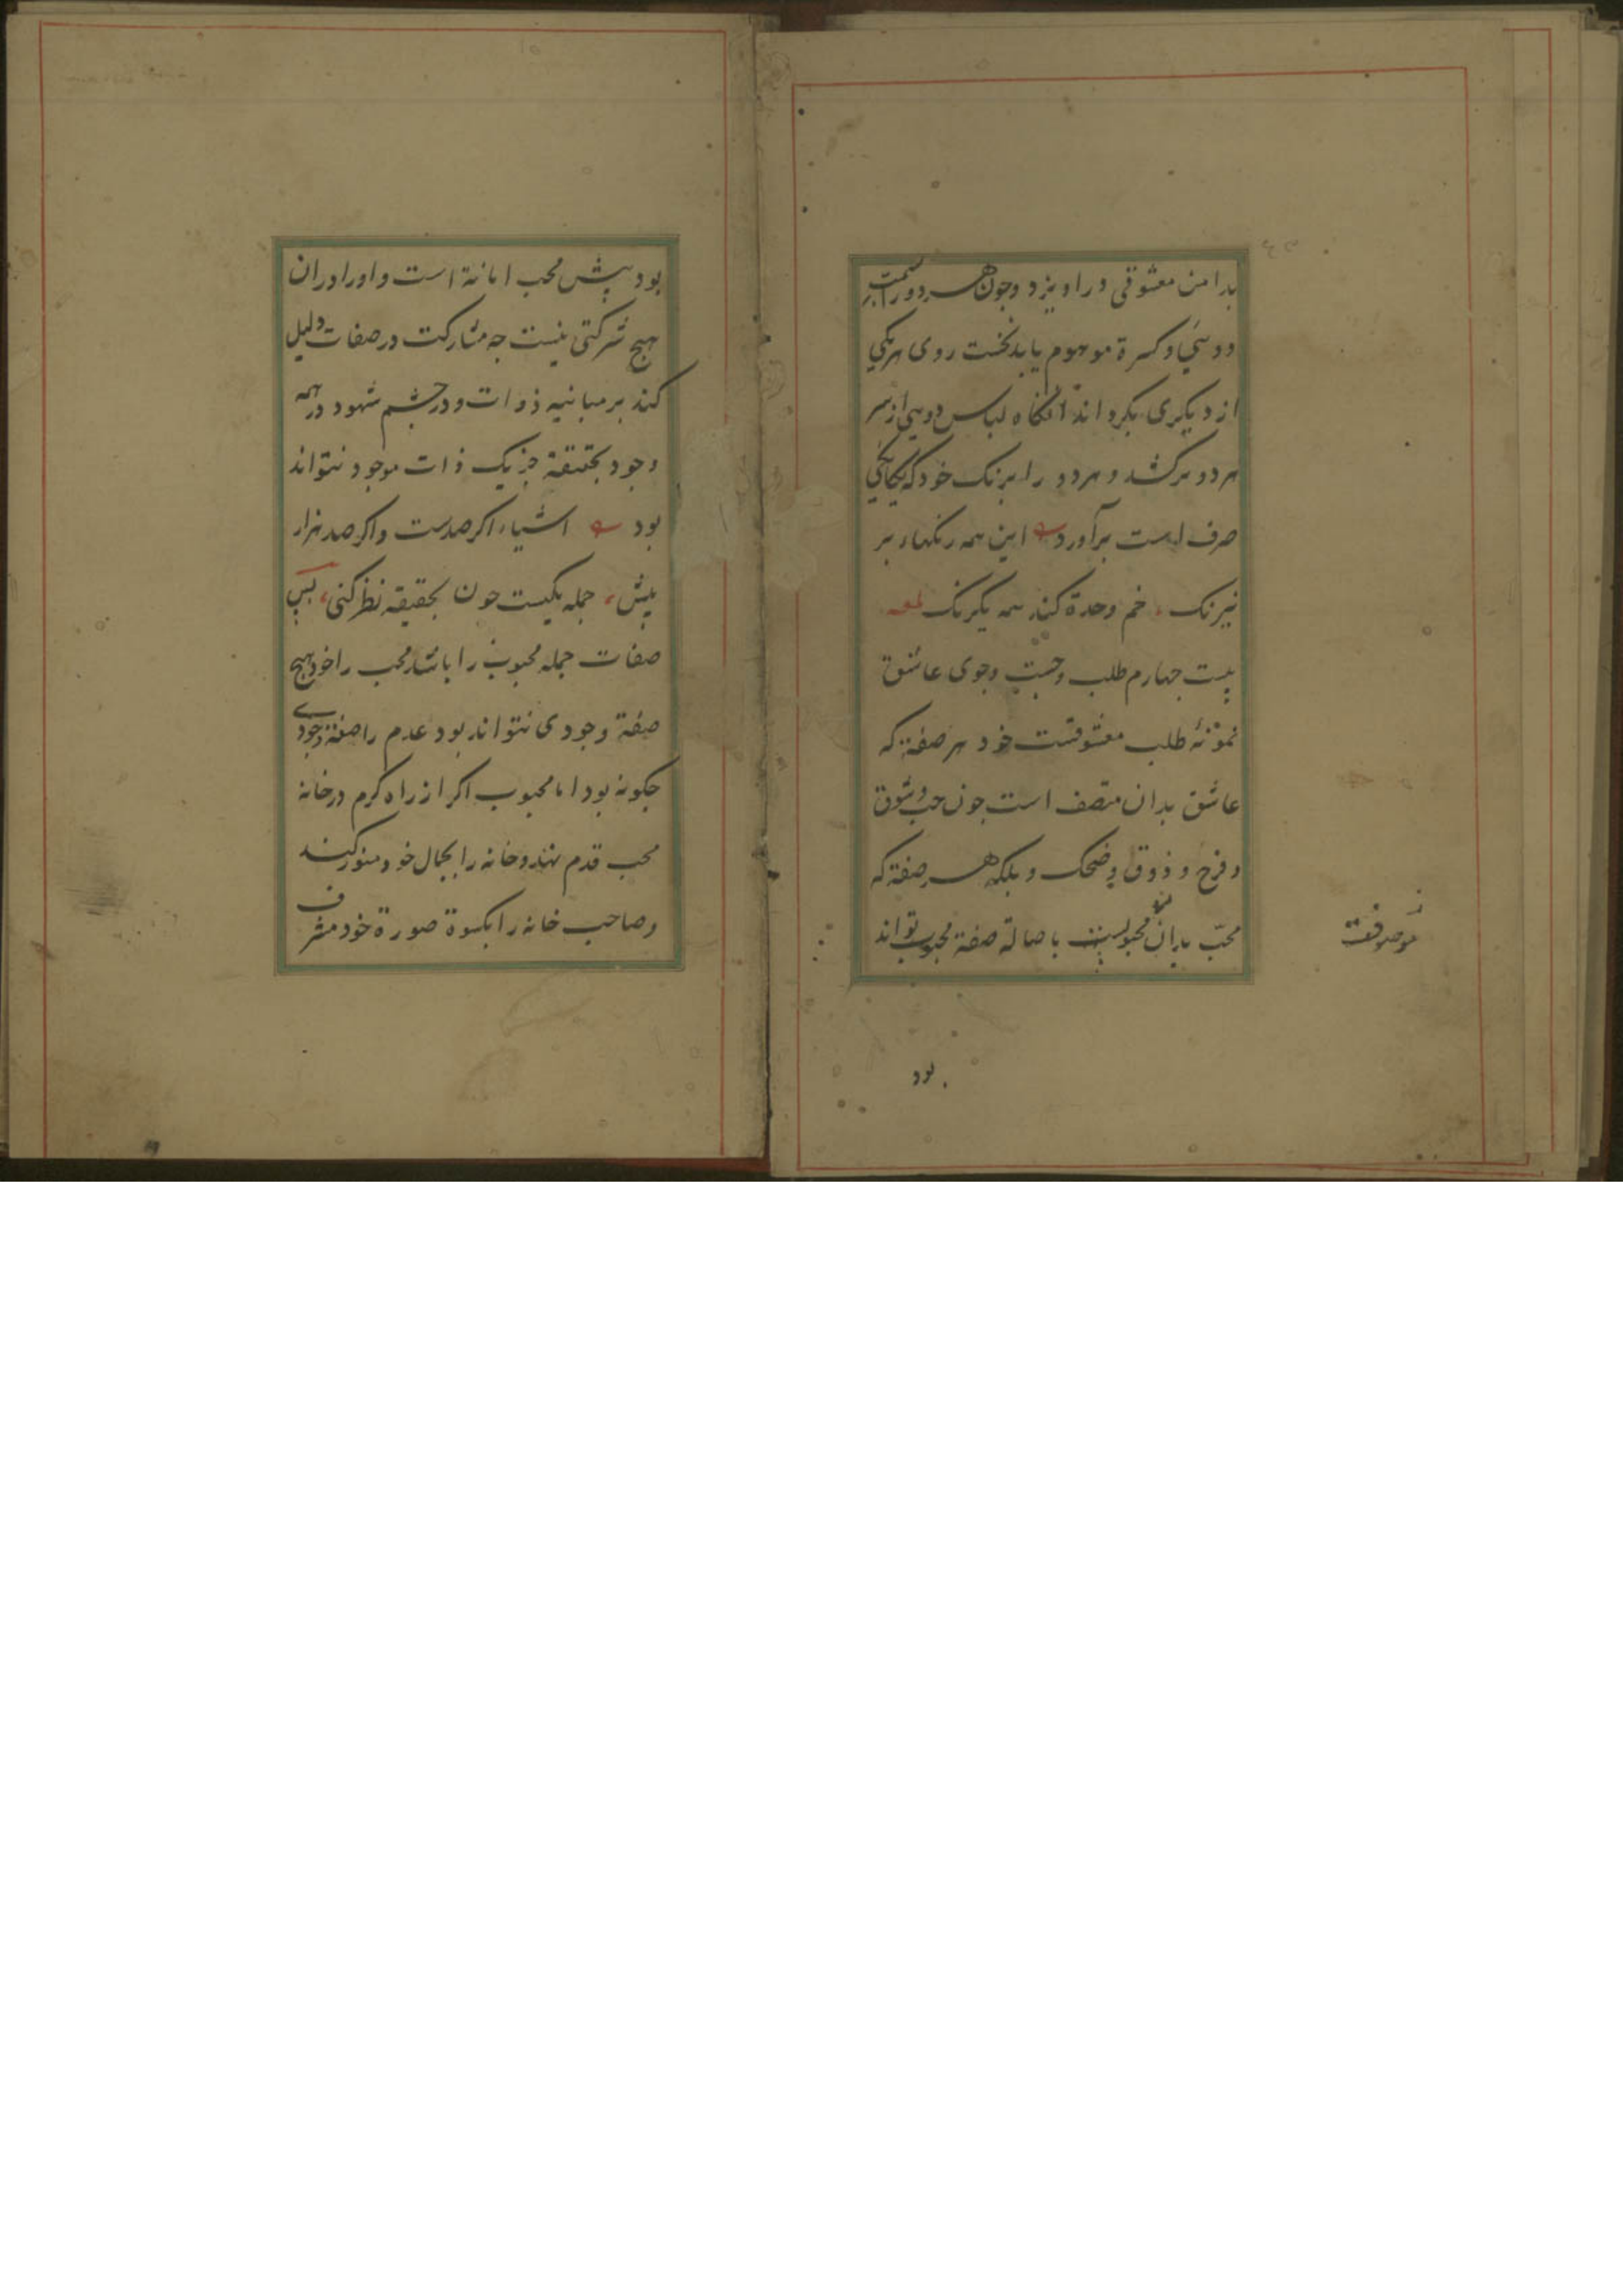 بدامن معشوقی دراویزد وجون هر دو را سمت
دویی و کسرة موهوم یابد نخست روی هریکی
از دیگری بگرداند آنگاه لباس دویی از سر
هر دو برکشد و هر دو را برنک خود که یکانکی
صرف است برآورد این همه رنکهاء بر
نیرنک خم وحدة کند همه یکرنک لمعه
بیست جهارم طلب وجست وجوی عاشق
نمونهٔ طلب معشوقست خود هر صفة که
عاشق بدان متصف است جون حب و شوق
و فرح و ذوق و ضحک و بلکه هر صفة که
محبّ بدان باصالة صفة محبوب تواند
موصوفست
بود
بود پیش محب امانة است و اورا دران
هیج شرکتی نیست جه مشارکت در صفات دلیل
کند بر مباینه ذوات و در جشم شهود در همه
وجود بحقیقة جز یک ذات موجود نتواند
بود اشیاء اکر صدست واکر صد هزار
بیش جمله یکیست جون بحقیقه نظر کنی بس
صفات جمله محبوب را باشد محب را خود هیج
صفة وجودی نتواند بود عدم را صفة وجودی
جکونه بود اما محبوب اکر از راه کرم در خانه
محب قدم نهد و خانه را بجمال خود منور کند
و صاحب خانه را بکسوة صورة خود مشرف